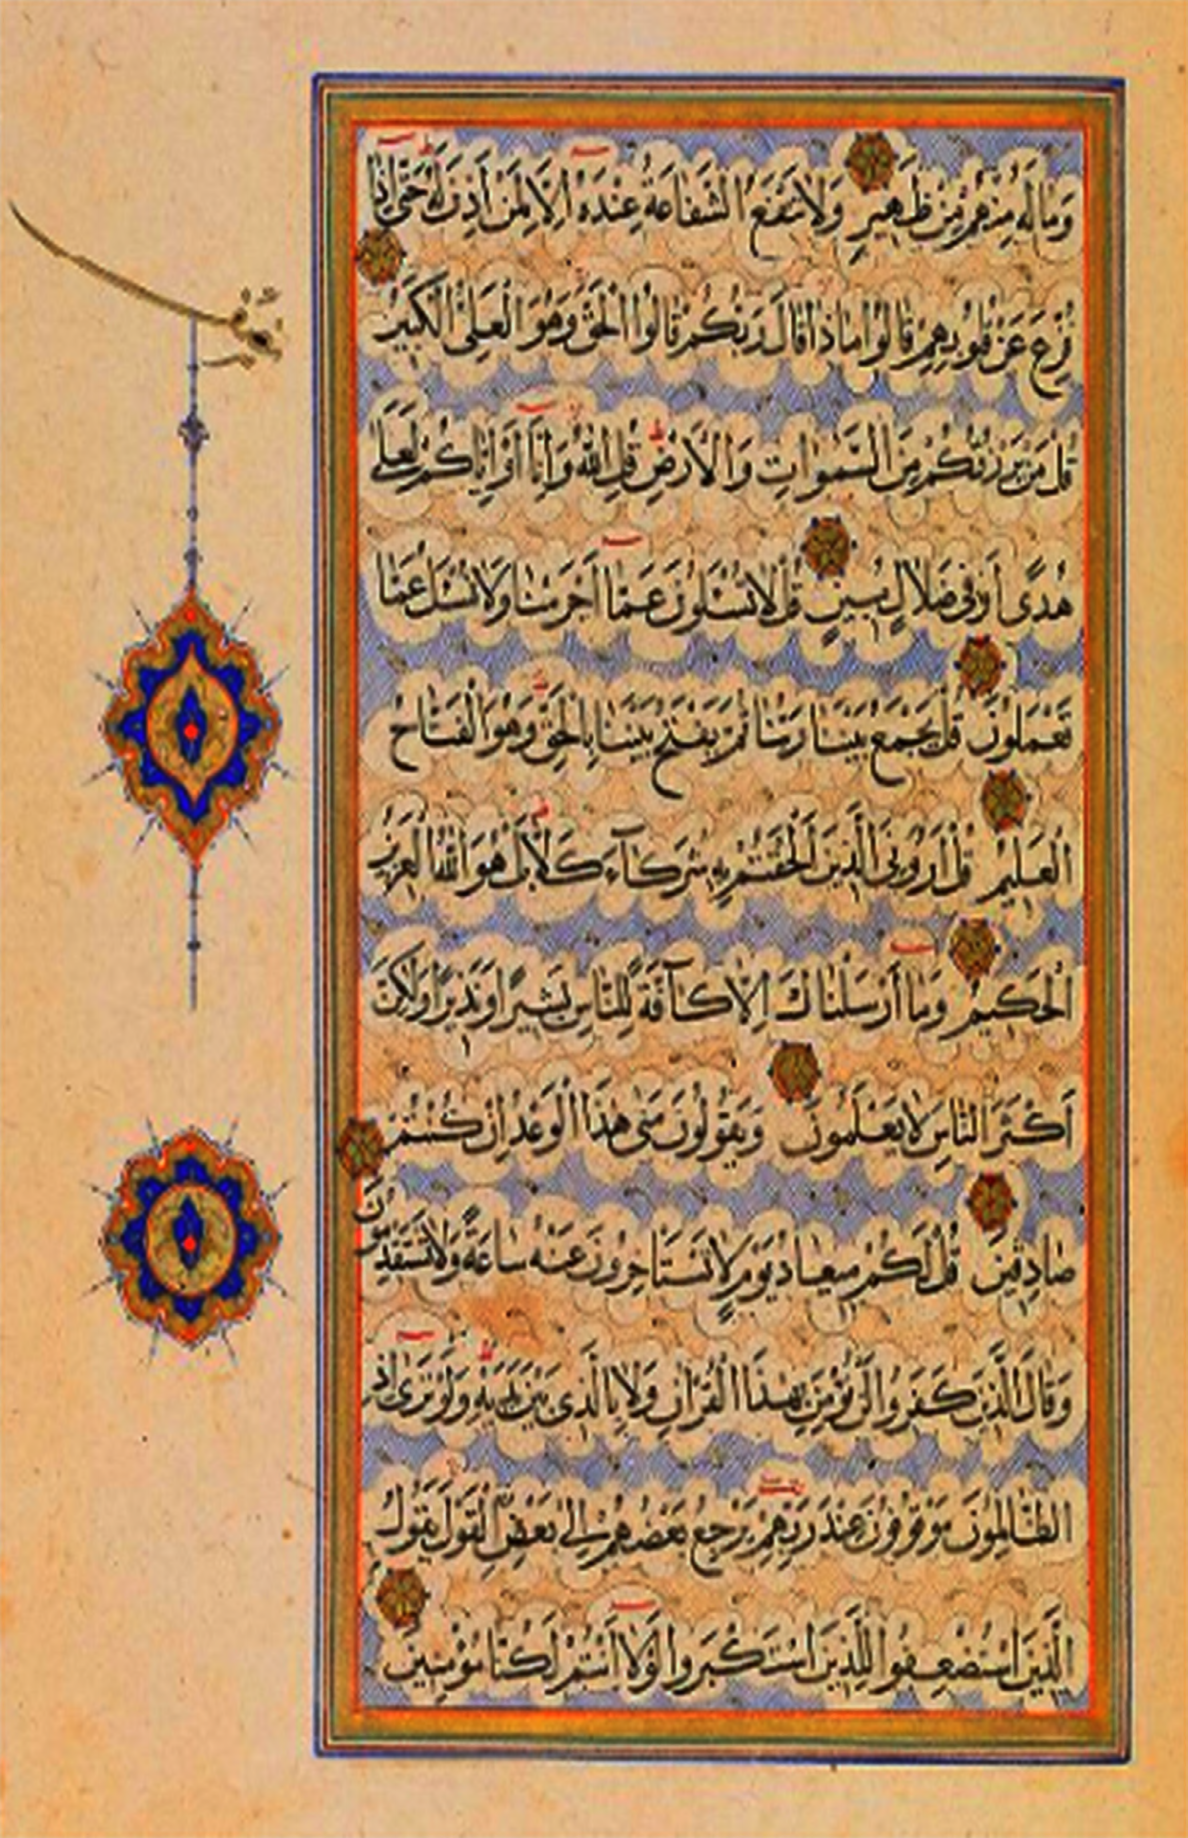 وَمَا لَهُ مِنْهُمْ مِنْ ظَهِيرٍ وَلَا تَنْفَعُ الشَّفَاعَةُ عِنْدَهُ إِلَّا لِمَنْ أَذِنَ لَهُ حَتَّى إِذَا
فُزِّعَ عَنْ قُلُوبِهِمْ قَالُوا مَاذَا قَالَ رَبُّكُمْ قَالُوا الْحَقَّ وَهُوَ الْعَلِيُّ الْكَبِيرُ
قُلْ مَنْ يَرْزُقُكُمْ مِنَ السَّمَوَاتِ وَالْأَرْضِ قُلِ اللَّهُ وَإِنَّا أَوْ إِيَّاكُمْ لَعَلَى
هُدًى أَوْ فِي ضَلَالٍ مُبِينٍ قُلْ لَا تُسْئَلُونَ عَمَّا أَجْرَمْنَا وَلَا نُسْئَلُ عَمَّا
تَعْمَلُونَ قُلْ يَجْمَعُ بَيْنَنَا رَبُّنَا ثُمَّ يَفْتَحُ بَيْنَنَا بِالْحَقِّ وَهُوَ الْفَتَّاحُ
الْعَلِيمُ قُلْ أَرُونِيَ الَّذِينَ أَلْحَقْتُمْ بِهِ شُرَكَاءَ كَلَّا بَلْ هُوَ اللَّهُ الْعَزِيزُ
الْحَكِيمُ وَمَا أَرْسَلْنَاكَ إِلَّا كَافَّةً لِلنَّاسِ بَشِيرًا وَنَذِيرًا وَلَكِنَّ
أَكْثَرَ النَّاسِ لَا يَعْلَمُونَ وَيَقُولُونَ مَتَى هَذَا الْوَعْدُ إِنْ كُنْتُمْ
صَادِقِينَ قُلْ لَكُمْ مِيعَادُ يَوْمٍ لَا تَسْتَأْخِرُونَ عَنْهُ سَاعَةً وَلَا تَسْتَقْدِمُونَ
وَقَالَ الَّذِينَ كَفَرُوا لَنْ نُؤْمِنَ بِهَذَا الْقُرْآنِ وَلَا بِالَّذِي بَيْنَ يَدَيْهِ وَلَوْ تَرَى إِذِ
الظَّالِمُونَ مَوْقُوفُونَ عِنْدَ رَبِّهِمْ يَرْجِعُ بَعْضُهُمْ إِلَى بَعْضٍ الْقَوْلَ يَقُولُ
الَّذِينَ اسْتُضْعِفُوا لِلَّذِينَ اسْتَكْبَرُوا لَوْلَا أَنْتُمْ لَكُنَّا مُؤْمِنِينَ